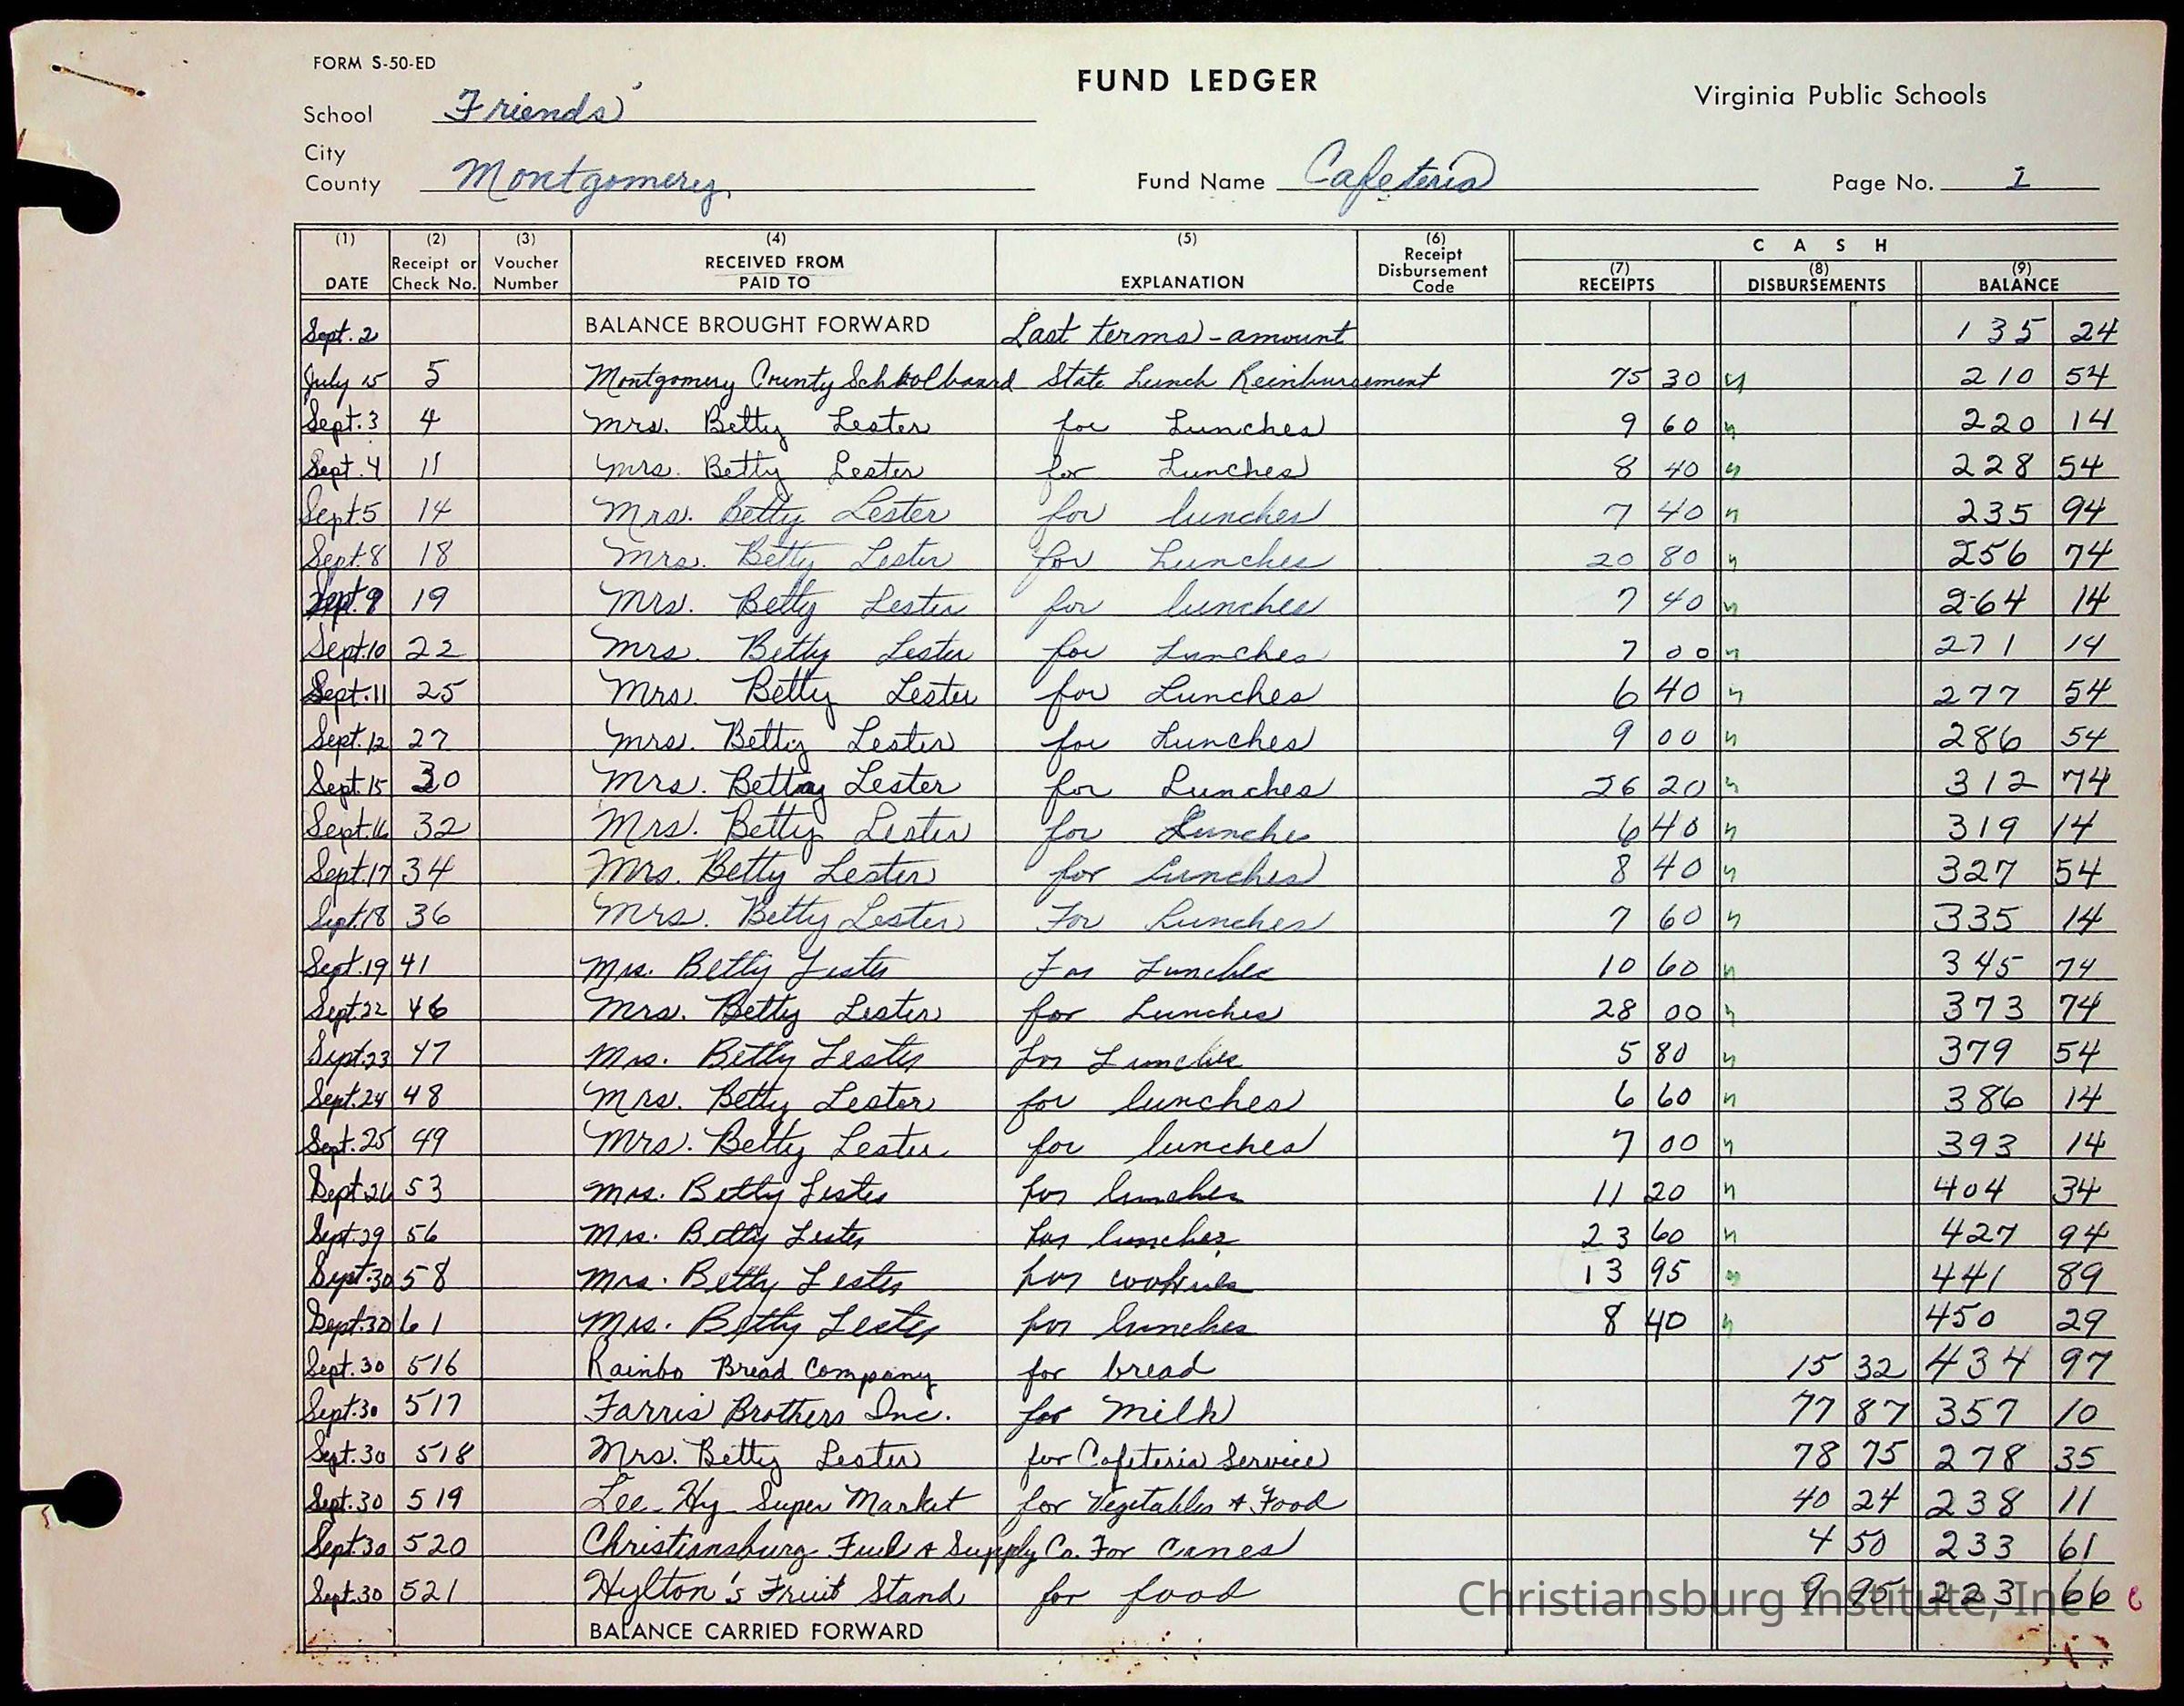 FORM S-50-ED
FUND LEDGER
Virginia Public Schools
School Friends'
City
County Montgomery
Fund Name Cafeteria
Page No. 1
(1) DATE (2) Receipt or Check No. (3) Voucher Number (4) RECEIVED FROM PAID TO (5) EXPLANATION (6) Receipt Disbursement Code CASH (7) RECEIPTS (8) DISBURSEMENTS (9) BALANCE
Sept. 2 BALANCE BROUGHT FORWARD Last terms - amount 135 24
July 15 5 Montgomery County Schoolboard State Lunch Reimbursement 75 30 210 54
Sept. 3 4 Mrs. Betty Lester for Lunches 9 60 220 14
Sept. 4 11 Mrs. Betty Lester for Lunches 8 40 228 54
Sept 5 14 Mrs. Betty Lester for lunches 7 40 235 94
Sept. 8 18 Mrs. Betty Lester for Lunches 20 80 256 74
Sept. 9 19 Mrs. Betty Lester for lunches 7 40 264 14
Sept. 10 22 Mrs. Betty Lester for Lunches 7 00 271 14
Sept. 11 25 Mrs. Betty Lester for Lunches 6 40 277 54
Sept. 12 27 Mrs. Betty Lester for Lunches 9 00 286 54
Sept. 15 30 Mrs. Betty Lester for Lunches 26 20 312 74
Sept. 16 32 Mrs. Betty Lester for Lunche 6 40 319 14
Sept. 17 34 Mrs. Betty Lester for Lunches 8 40 327 54
Sept. 18 36 Mrs. Betty Lester For Lunches 7 60 335 14
Sept. 19 41 Mrs. Betty Lester For Lunches 10 60 345 74
Sept 22 46 Mrs. Betty Lester for Lunches 28 00 373 74
Sept. 23 47 Mrs. Betty Lester for Lunches 5 80 379 54
Sept. 24 48 Mrs. Betty Lester for lunches 6 60 386 14
Sept. 25 49 Mrs. Betty Lester for lunches 7 00 393 14
Sept 26 53 Mrs. Betty Lester for lunches 11 20 404 34
Sept. 29 56 Mrs. Betty Lester for lunches 23 60 427 94
Sept. 30 58 Mrs. Betty Lester for cookies 13 95 441 89
Sept. 30 61 Mrs. Betty Lester for lunches 8 40 450 29
Sept. 30 516 Rainbo Bread Company for bread 15 32 434 97
Sept. 30 517 Farris Brothers Inc. for Milk 77 87 357 10
Sept. 30 518 Mrs. Betty Lester for Cafeteria Service 78 75 278 35
Sept. 30 519 Lee-Hy Super Market for Vegetables & Food 40 24 238 11
Sept. 30 520 Christiansburg Fuel & Supply Co. For Canes 4 50 233 61
Sept. 30 521 Hylton's Fruit Stand for food 9 95 223 66
Christiansburg Institute, Inc
BALANCE CARRIED FORWARD